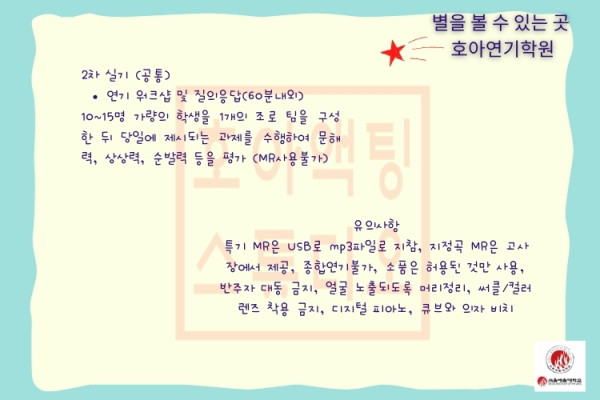 별을 볼 수 있는 곳
호아연기학원
2차 실기 (공통)
• 연기 워크샵 및 질의응답(60분내외)
10~15명 가량의 학생을 1개의 조로 팀을 구성
한 뒤 당일에 제시되는 과제를 수행하여 문해
력, 상상력, 순발력 등을 평가 (MR사용불가)
호아액팅
스튜디오
유의사항
특기 MR은 USB로 mp3파일로 지참, 지정곡 MR은 고사
장에서 제공, 종합연기불가, 소품은 허용된 것만 사용,
반주자 대동 금지, 얼굴 노출되도록 머리정리, 써클/컬러
렌즈 착용 금지, 디지털 피아노, 큐브와 의자 비치
서울예술대학교